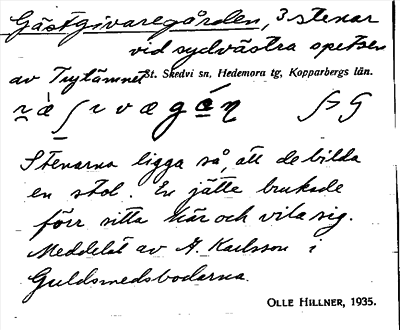 Gästgivaregården, 3 stenar
vid sydvästra spetsen
av Trytärnet St. Skedvi sn, Hedemora tg, Kopparbergs län.
Stenarna ligga så, att de bilda
en stol. En jätte brukade
förr sitta här och vila sig.
Meddelat av A. Karlsson i
Guldsmedsbodarna.
OLLE HILLNER, 1935.